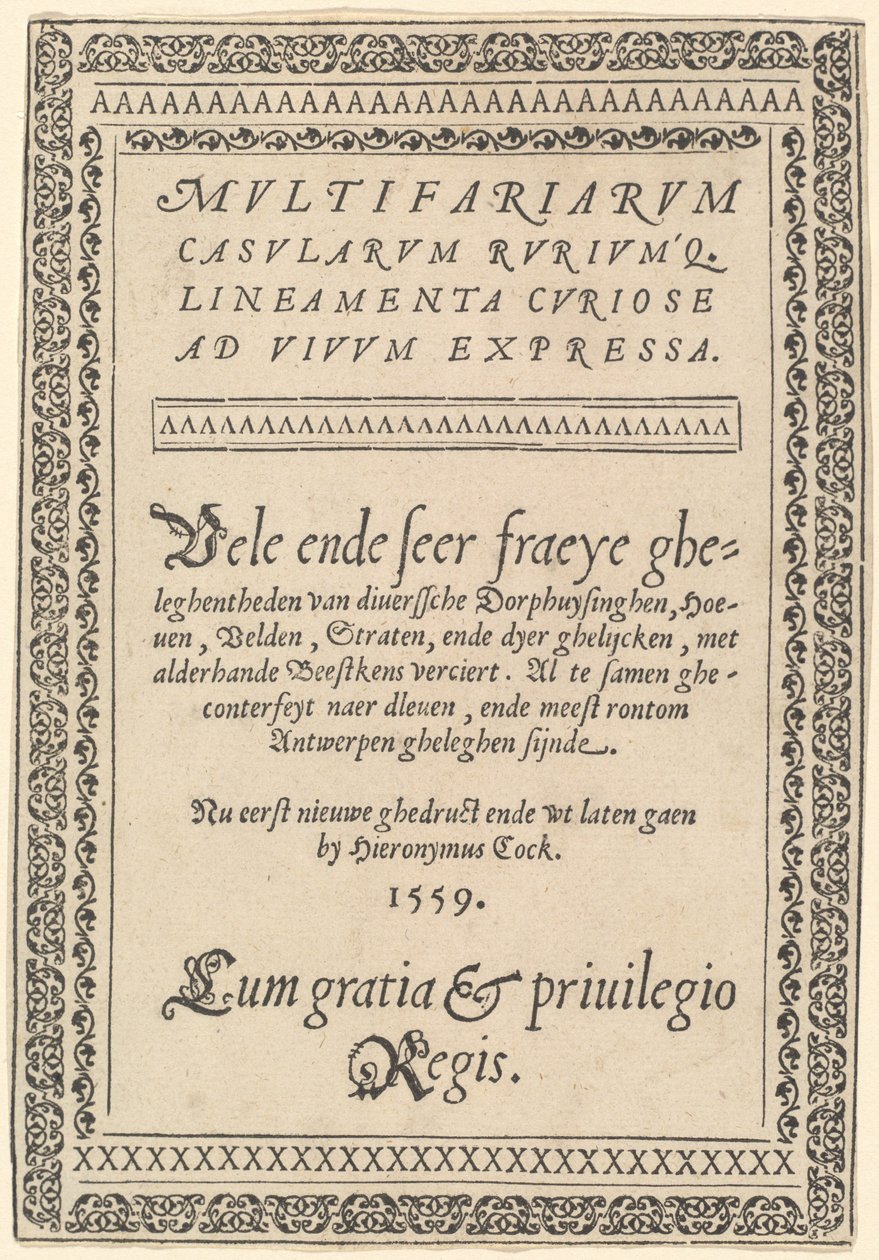 AAAAAAAAAAAAAAAAAAAAAAAAAAAAAAA
MVLTIFARIARVM
CASVLARVM RVRIVM'Q.
LINEAMENTA CVRIOSE
AD VIVVM EXPRESSA.
ΛΛΛΛΛΛΛΛΛΛΛΛΛΛΛΛΛΛΛΛΛΛΛΛΛΛΛ
Vele ende ſeer fraeye ghe-
leghentheden van diuerſſche Dorphuyſinghen, Hoe-
uen, Velden, Straten, ende dyer ghelijcken, met
alderhande Beeſtkens verciert. Al te ſamen ghe-
conterfeyt naer dleuen, ende meeſt rontom
Antwerpen gheleghen ſijnde.
Nu eerſt nieuwe ghedruct ende wt laten gaen
by Hieronymus Cock.
1559.
Cum gratia & priuilegio
Regis.
XXXXXXXXXXXXXXXXXXXXXXXXXXXXXXXXX